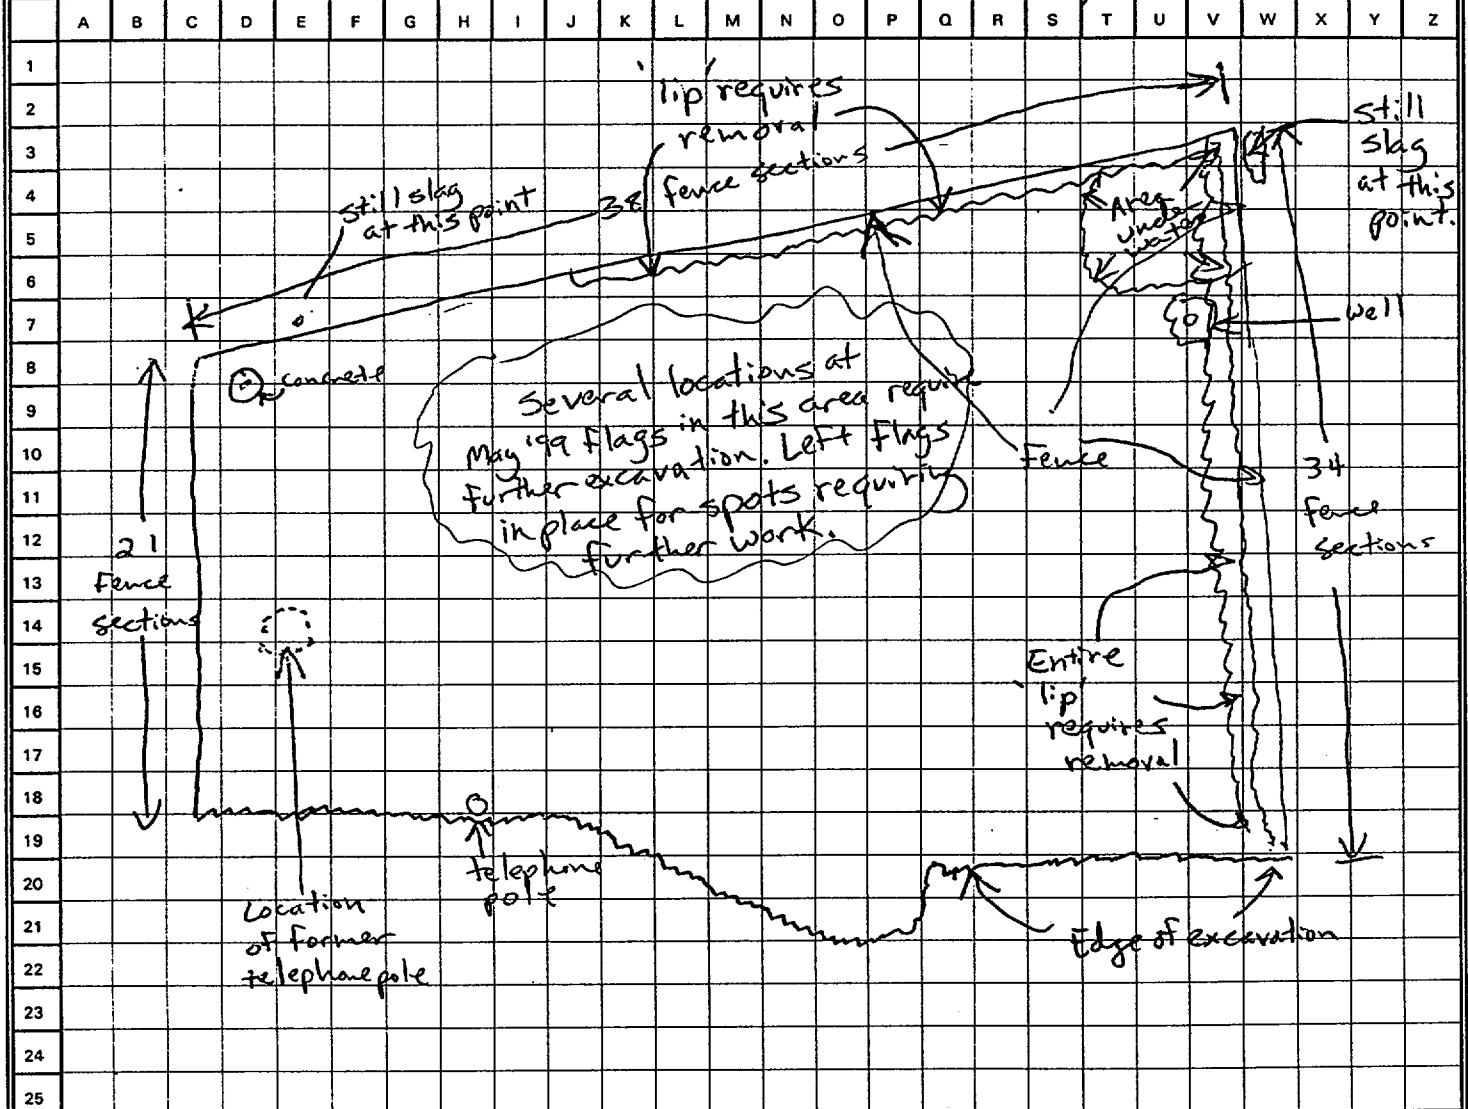 A B C D E F G H I J K L M N O P Q R S T U V W X Y Z
1
2
3
4
5
6
7
8
9
10
11
12
13
14
15
16
17
18
19
20
21
22
23
24
25
'lip' requires
removal
38 fence sections
still slag
at this point
still
slag
at this
point.
Area
under
water
well
concrete
Several locations at
May '99 flags in this area require
further excavation. Left flags
in place for spots requiring
further work.
Fence
34
fence
sections
21
Fence
sections
Entire
'lip'
requires
removal
telephone
pole
Location
of former
telephone pole
Edge of excavation